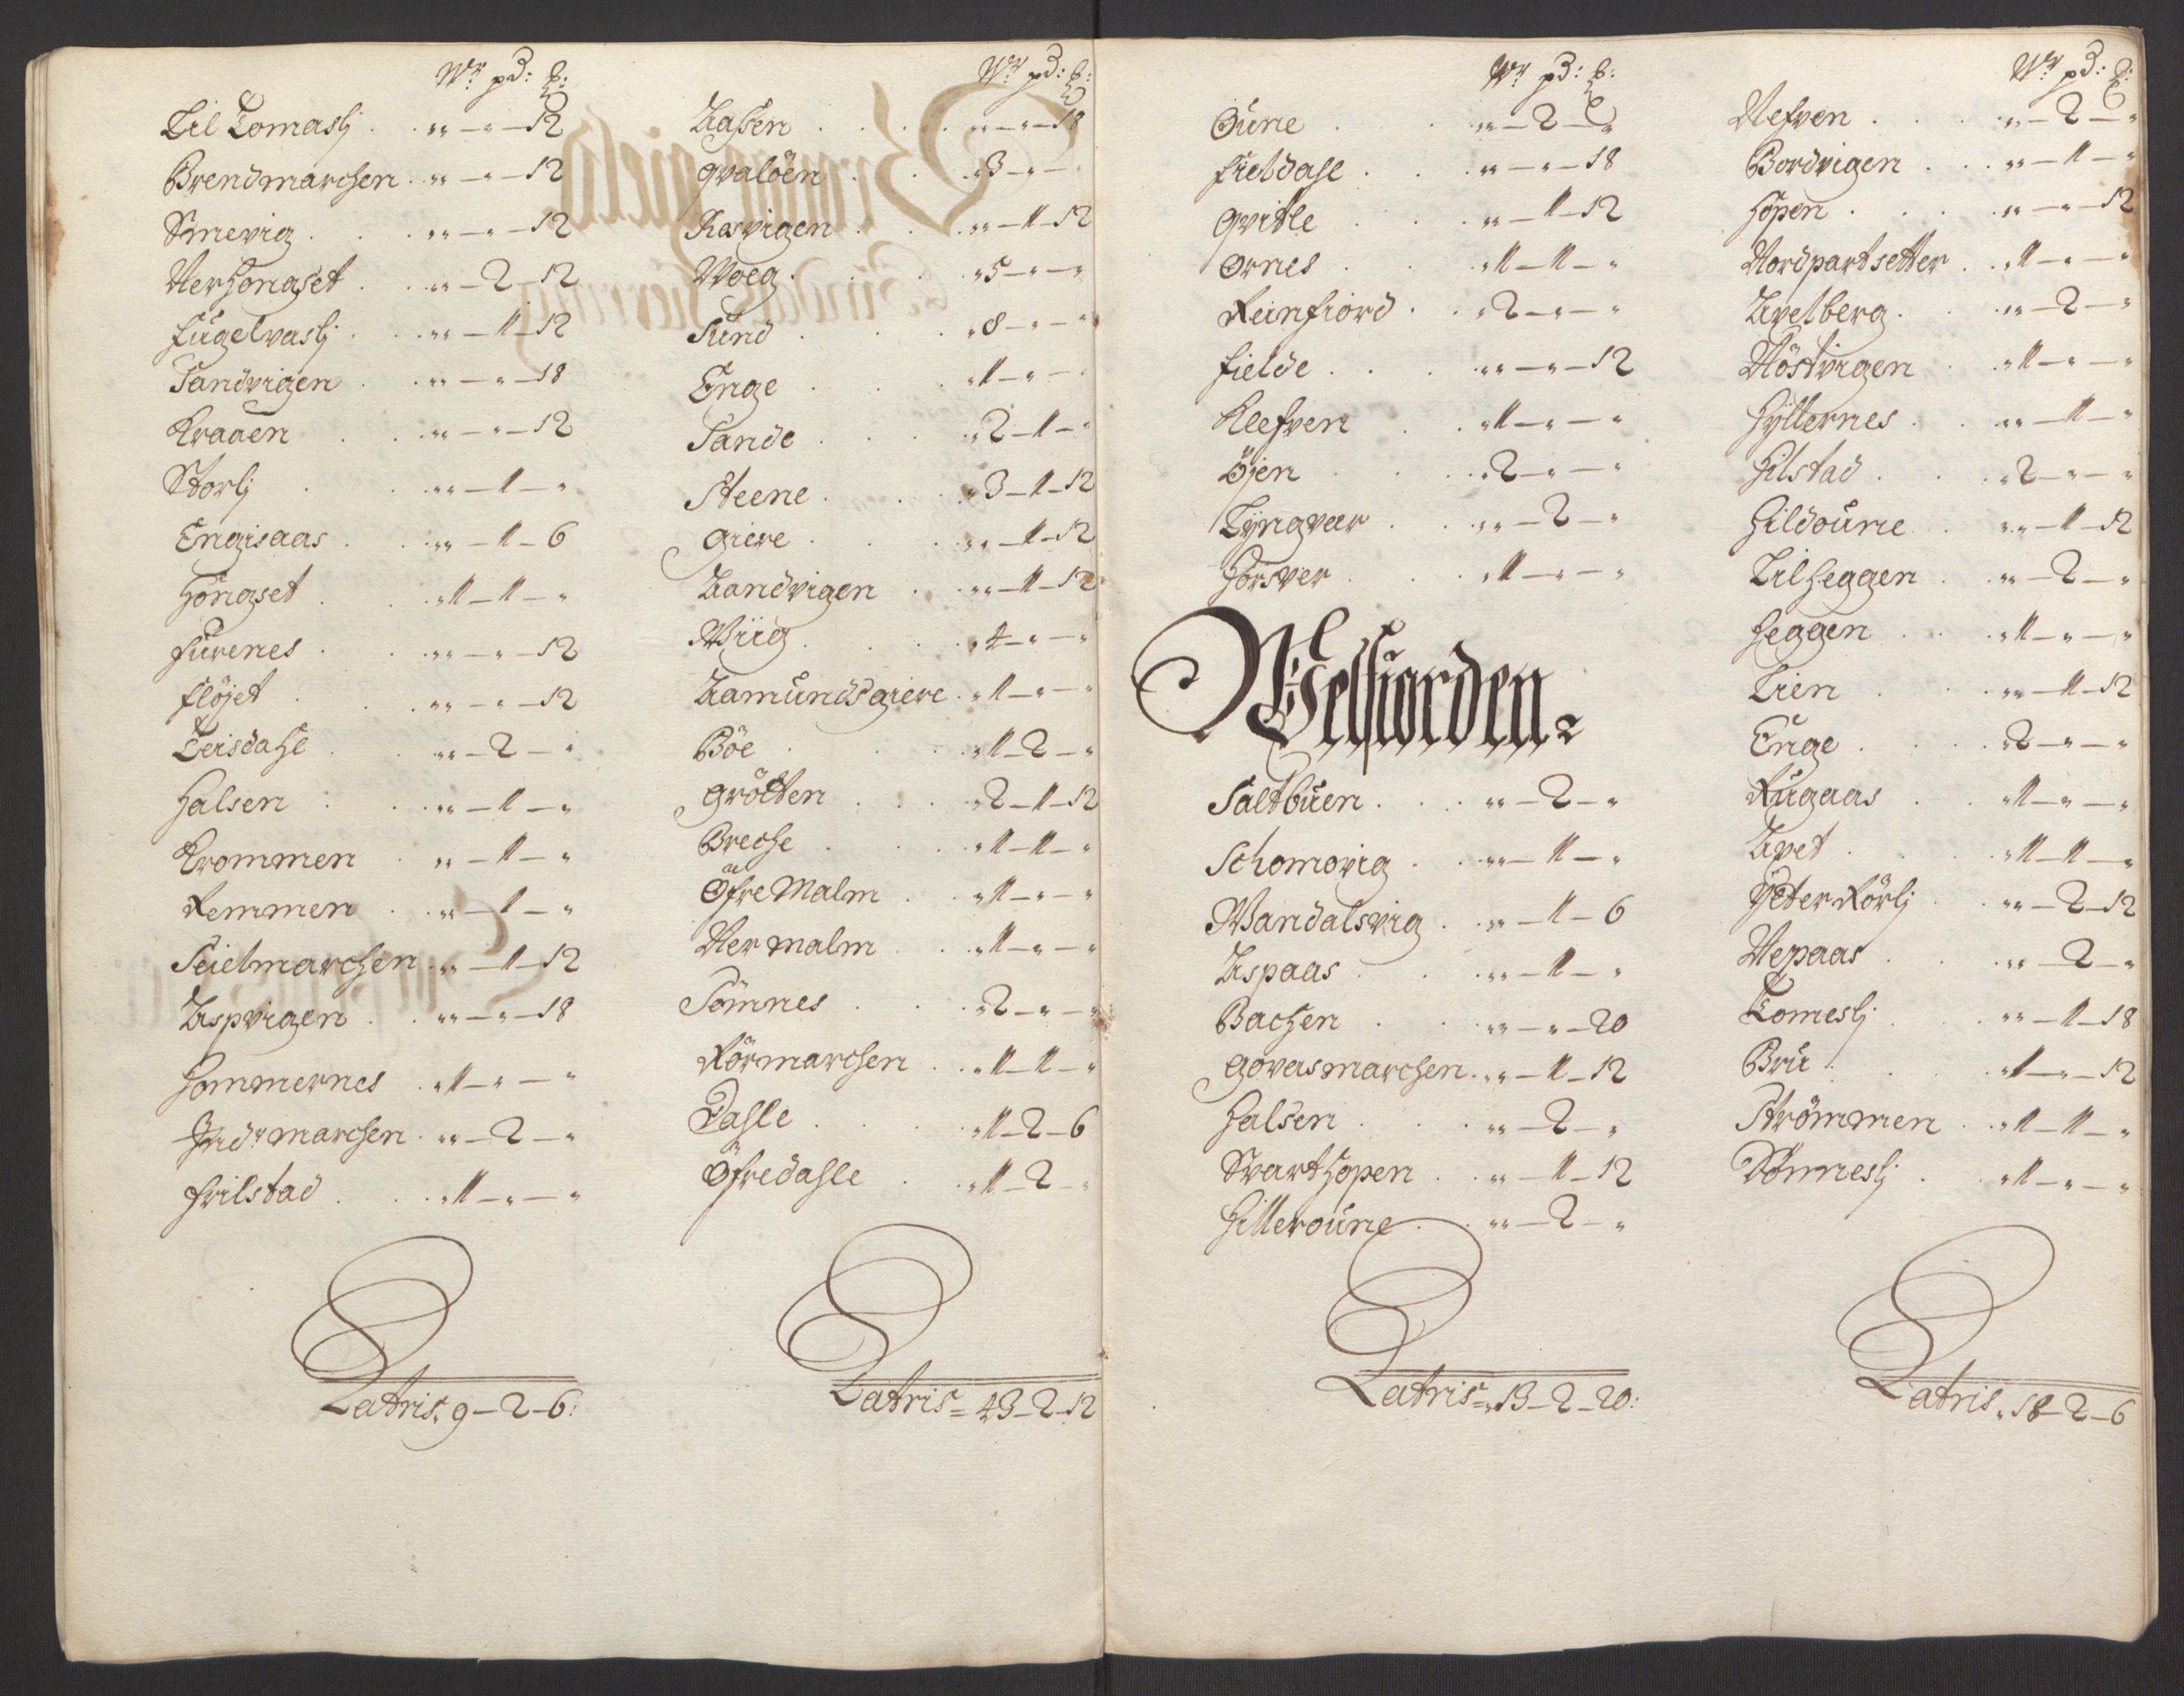 Wr pd: lb:
Til Tomaslj . . „ – „ – 12
Brendmarchen . „ – „ – 12
Smevig . . „ – „ – 12
Nerhongset . . „ – 2 – 12
Fugelvaslj . . „ – 1 – 12
Sandvigen . . „ – „ – 18
Kraaen . . „ – „ – 12
Storlj . . „ – 1 – „
Engisaas . . „ – 1 – 6
Hongset . . 1 – 1 – „
Furenes . . „ – „ – 12
Fløjet . . „ – „ – 12
Teisdahl . . „ – 2 – „
Halsen . . „ – 1 – „
Krommen . „ – 1 – „
Remmen . „ – 1 – „
Seielmarchen . „ – 1 – 12
Aspvigen . . „ – „ – 18
Hommernes . 1 – „ – „
Indrmarchen . „ – 2 – „
Frilstad . . 1 – „ – „
Latris „ 9 – 2 – 6:
Wr pd: lb:
Aasen . . „ – „ – 18
Qvaløen . . 3 – „ – „
Rosvigen . . „ – 1 – 12
Woeg . . 5 – „ – „
Sund . . 8 – „ – „
Enge . . 1 – „ – „
Sande . . 2 – 1 – „
Steene . . 3 – 1 – 12
Giere . . „ – 1 – 12
Aandvigen . „ – 1 – 12
Wiig . . 4 – „ – „
Aamundsgiere . 1 – „ – „
Bøe . . 1 – 2 – „
Grøtten . . 2 – 1 – 12
Breche . . 1 – 1 – „
Øfre Malm . 1 – „ – „
Ner malm . . 1 – „ – „
Sømnes . . 2 – „ – „
Rørmarchen . 1 – 1 – „
Dahle . . 1 – 2 – 6
Øfredahle . 1 – 2 – „
Latris = 43 – 2 – 12
Wr pd: lb:
Oune . . „ – 2 – „
Fieldahl . . „ – „ – 18
Qvitle . . „ – 1 – 12
Ornes . . 1 – 1 – „
Reinfiord . . 2 – „ – „
Fielde . . „ – „ – 12
Klefven . . 1 – „ – „
Øjen . . 2 – „ – „
Lyngvær . . „ – 2 – „
Horsver . . 1 – „ – „
Welfiorden.
Saltbuen . . „ – 2 – „
Schomovig . . „ – 1 – „
Wandalsvig . „ – 1 – 6
Aspaas . . „ – 1 – „
Bachen . . „ – „ – 20
Govasmarchen . „ – 1 – 12
Halsen . . „ – 2 – „
Svarthopen . „ – 1 – 12
Hilleroune . „ – 2 – „
Latris = „ 13 – 2 – 20:
Wr pd: lb:
Nefven . . „ – 2 – „
Bordvigen . . „ – 1 – „
Hopen . . „ – „ – 12
Nordpartsetter . 1 – „ – „
Avelberg . . „ – 2 – „
Nøstvigen . 1 – „ – „
Hyllernes . . „ – 1 – „
Hilstad . . 2 – „ – „
Hildoune . „ – 1 – 12
Lilheggen . „ – 2 – „
Heggen . . 1 – „ – „
Lien . . „ – 1 – 12
Enge . . 2 – „ – „
Rugaas . . 1 – „ – „
Avet . . 1 – 1 – „
Yter Rørlj . „ – 2 – 12
Nepaas . . „ – 2 – „
Tomeslj . . „ – 1 – 18
Bru . . 1 – „ – 12
Strømmen . 1 – 1 – „
Dønneslj . 1 – „ – „
Latris „ 18 – 2 – 6